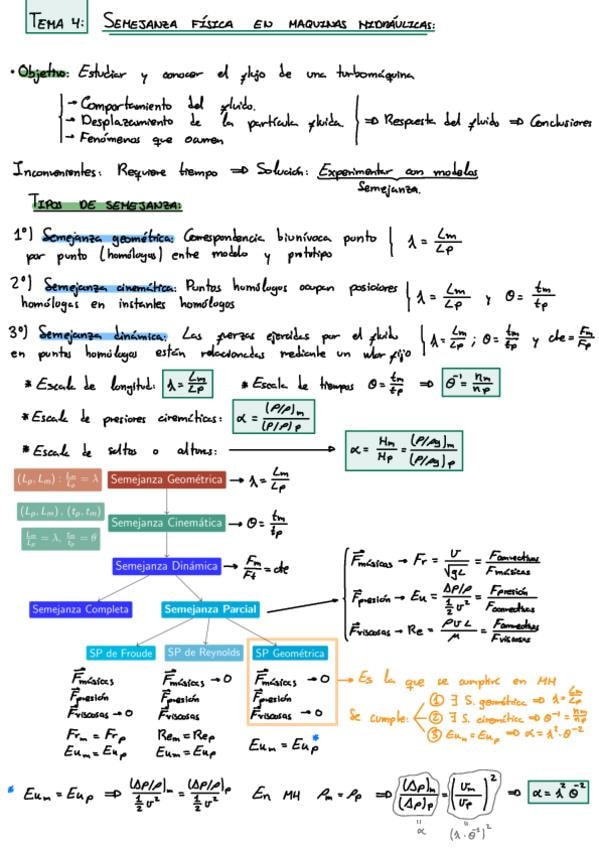 TEMA 4: SEMEJANZA FÍSICA EN MAQUINAS HIDRÁULICAS:
• Objetivo: Estudiar y conocer el flujo de una turbomáquina
→ Comportamiento del fluido.
→ Desplazamiento de la partícula fluida. ⇒ Respuesta del fluido ⇒ Conclusiones
→ Fenómenos que ocurren
Inconvenientes: Requiere tiempo ⇒ Solución: Experimentar con modelos
Semejanza.
TIPOS DE SEMEJANZA:
1º) Semejanza geométrica: Correspondencia biunívoca punto
por punto (homólogos) entre modelo y prototipo | λ = Lm/Lp
2º) Semejanza cinemática: Puntos homólogos ocupan posiciones
homólogas en instantes homólogos | λ = Lm/Lp y θ = tm/tp
3º) Semejanza dinámica: Las fuerzas ejercidas por el fluido
en puntos homólogos están relacionadas mediante un valor fijo | λ = Lm/Lp ; θ = tm/tp y cte = Fm/Fp
* Escala de longitud: λ = Lm/Lp * Escala de tiempos θ = tm/tp ⇒ θ⁻¹ = nm/np
* Escala de presiones cinemáticas: α = (P/ρ)m/(P/ρ)p
* Escala de saltos o alturas: → α = Hm/Hp = (P/ρg)m/(P/ρg)p
(Lp, Lm) : Lm/Lp = λ Semejanza Geométrica → λ = Lm/Lp
(Lp, Lm) , (tp, tm) Semejanza Cinemática → θ = tm/tp
Lm/Lp = λ, tm/tp = θ
Semejanza Dinámica → Fm/Ft = cte
Semejanza Completa Semejanza Parcial
Fmásicas → Fr = v/√gL = Fconvectivas/Fmásicas
Fpresión → Eu = ΔP/ρ / ½v² = Fpresión/Fconvectivas
Fviscosas → Re = ρvL/μ = Fconvectivas/Fviscosas
SP de Froude SP de Reynolds SP Geométrica
Fmásicas Fmásicas → 0 Fmásicas → 0
Fpresión Fpresión Fpresión
Fviscosas → 0 Fviscosas Fviscosas → 0
Frm = Frp Rem = Rep
Eum = Eup Eum = Eup Eum = Eup *
→ Es la que se cumplirá en MH
Se cumple:
① ∃ S. geométrica ⇒ λ = Lm/Lp
② ∃ S. cinemática ⇒ θ⁻¹ = nm/np
③ Eum = Eup ⇒ α = λ²·θ⁻²
* Eum = Eup ⇒ (ΔP/ρ)m / ½v² = (ΔP/ρ)p / ½v² En MH ρm = ρp ⇒ (Δp)m/(Δp)p = (vm/vp)² ⇒ α = λ² θ⁻²
" α " (λ·θ⁻¹)²